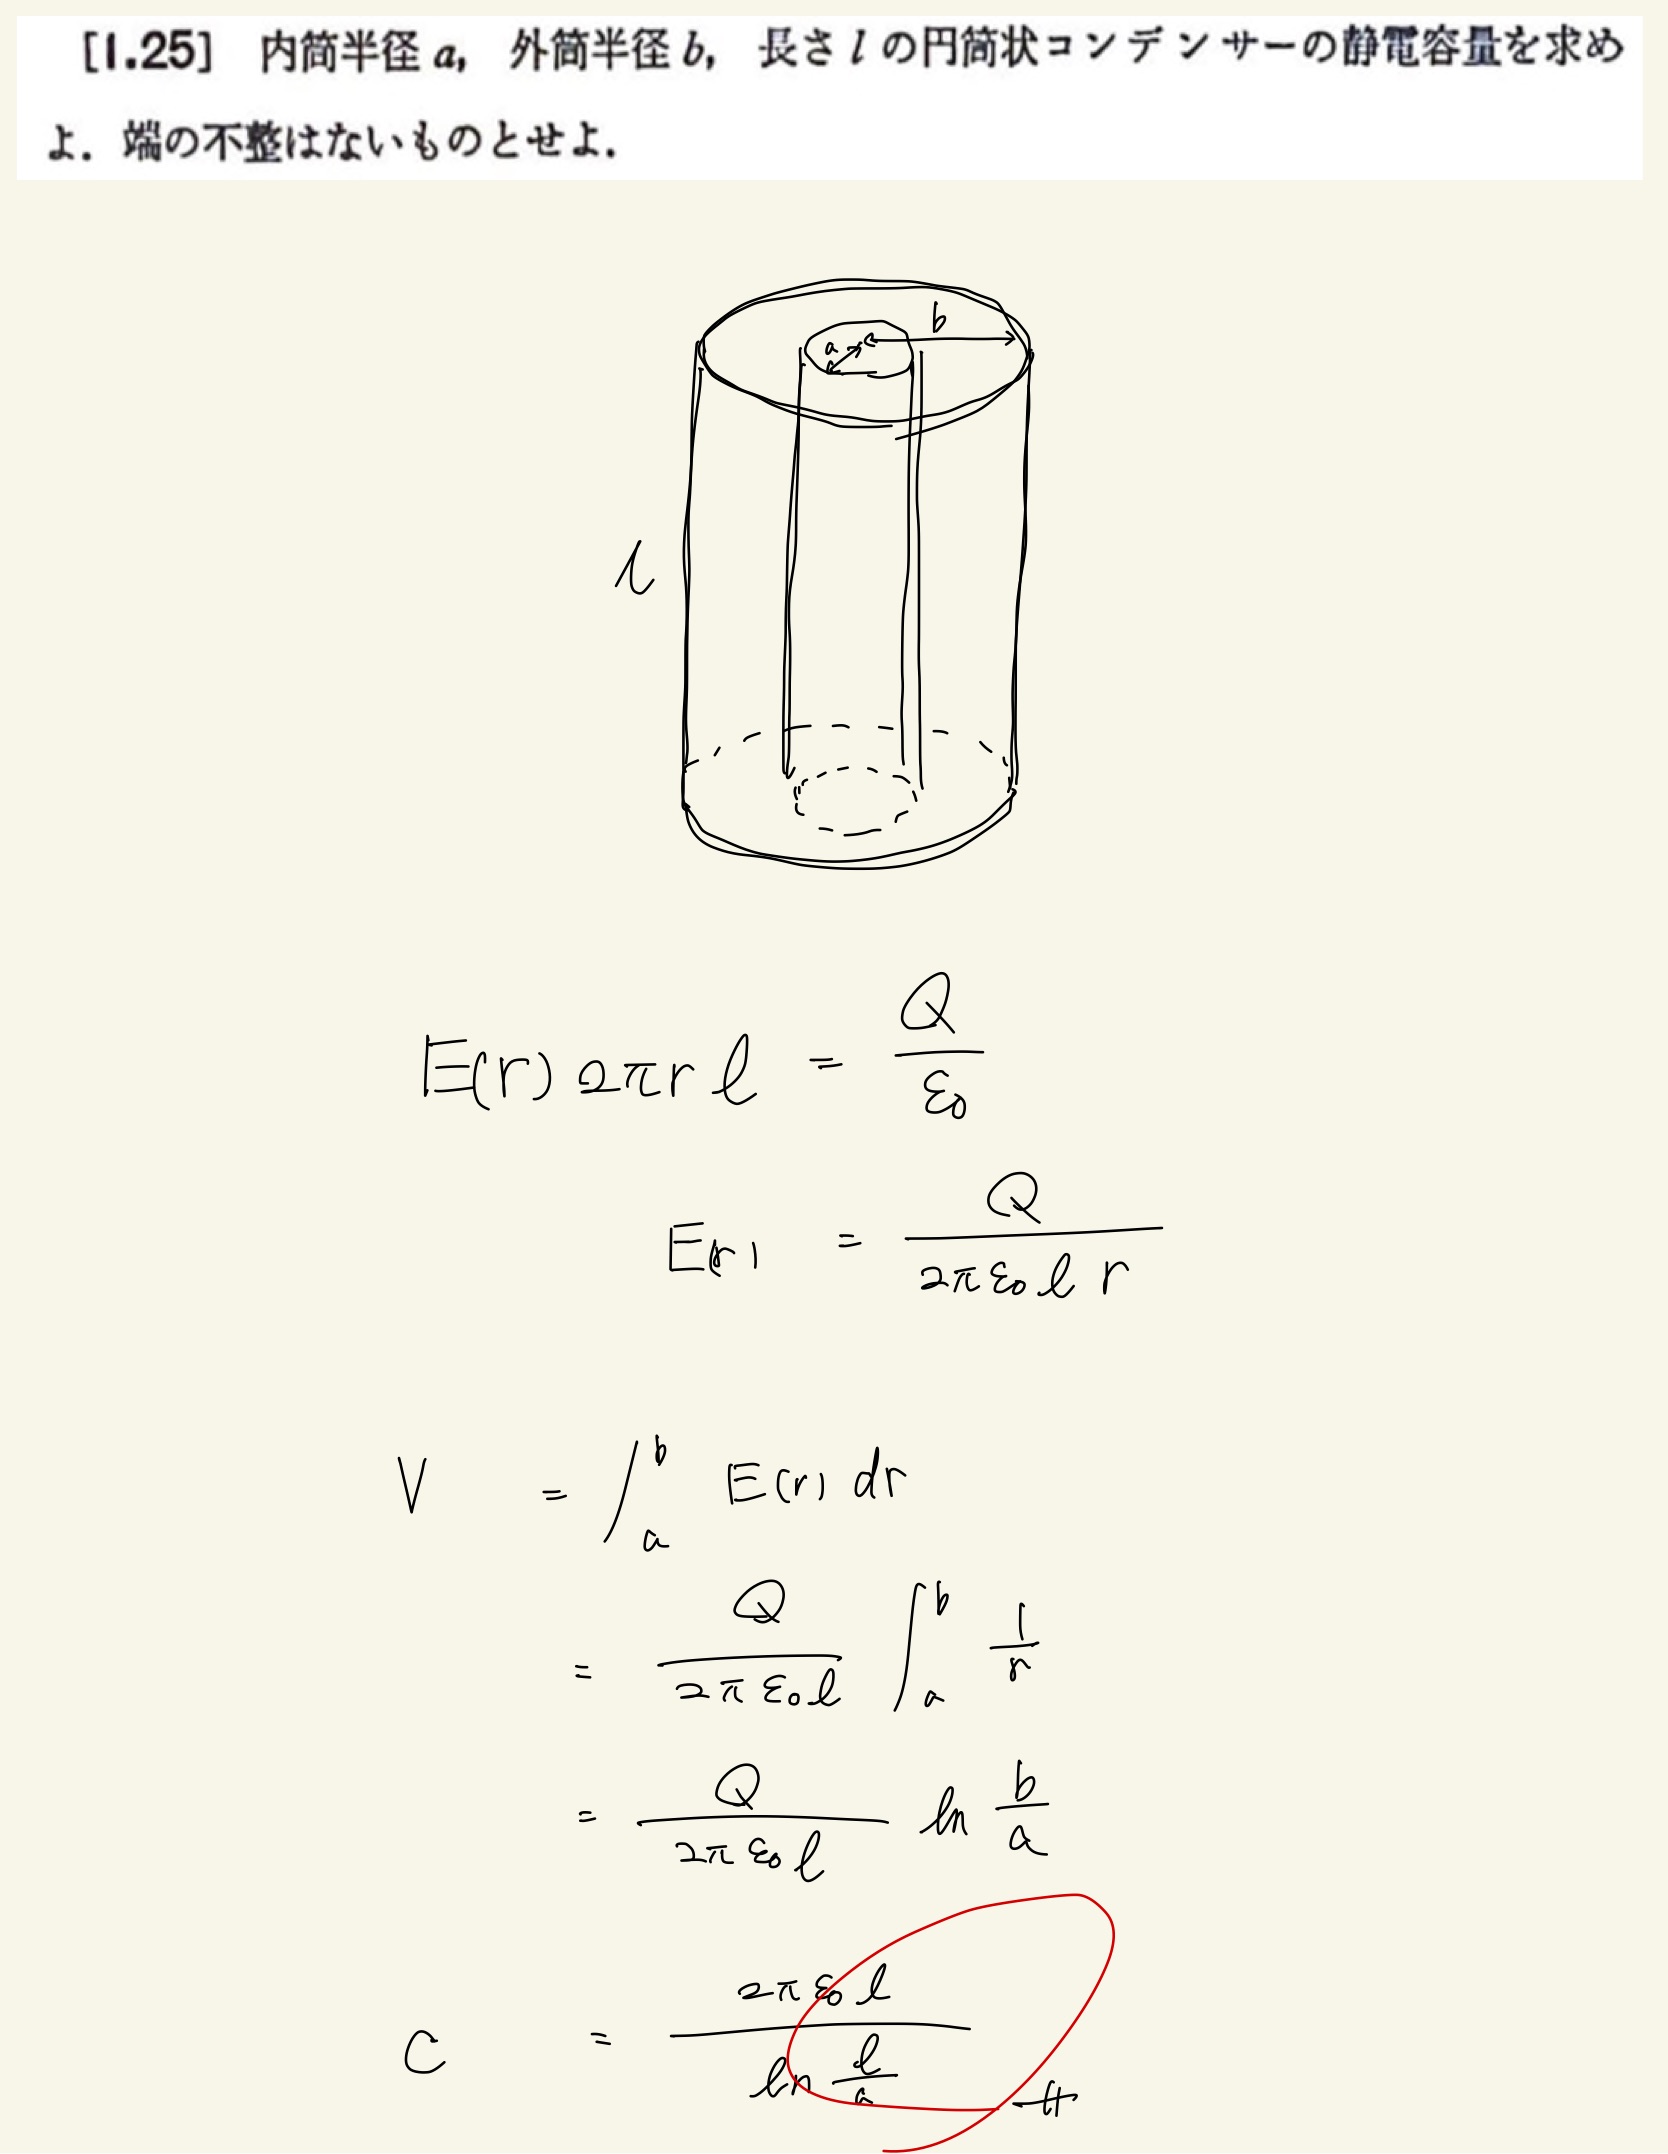 [1.25] 内筒半径 a, 外筒半径 b, 長さ l の円筒状コンデンサーの静電容量を求め
よ. 端の不整はないものとせよ.
b
a
l
E(r) 2πr l = Q/ε₀
E(r) = Q/(2πε₀ l r)
V = ∫_a^b E(r) dr
= Q/(2πε₀l) ∫_a^b 1/r
= Q/(2πε₀l) ln b/a
C = 2πε₀l/(ln l/a)